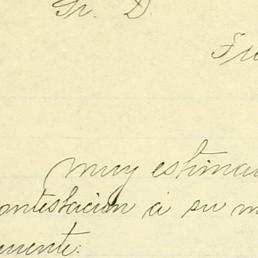 Sr. D.
muy estima
ontestacion á su m
mente: